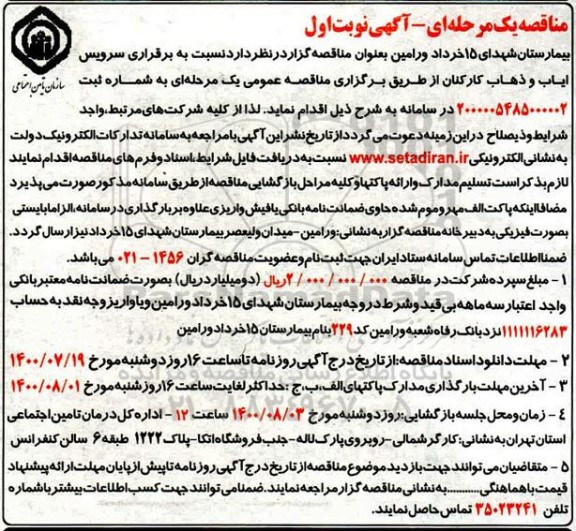 مناقصه یک مرحله‌ای - آگهی نوبت اول
سازمان تأمین اجتماعی
بیمارستان شهدای ۱۵ خرداد ورامین بعنوان مناقصه گزار در نظر دارد نسبت به برقراری سرویس
ایاب و ذهاب کارکنان از طریق برگزاری مناقصه عمومی یک مرحله‌ای به شماره ثبت
۲۰۰۰۰۰۵۴۸۵۰۰۰۰۰۲ در سامانه به شرح ذیل اقدام نماید: لذا از کلیه شرکت‌های مرتبط، واجد
شرایط و ذیصلاح در این زمینه دعوت می گردد از تاریخ نشر این آگهی با مراجعه به سامانه تدارکات الکترونیک دولت
به نشانی الکترونیکی www.setadiran.ir نسبت به دریافت فایل شرایط، اسناد و فرم های مناقصه اقدام نمایند
لازم بذکر است تسلیم مدارک و ارائه پاکتها و کلیه مراحل بازگشایی مناقصه از طریق سامانه مذکور صورت می پذیرد
مضافا اینکه پاکت الف مهر و موم شده حاوی ضمانت نامه بانکی یا فیش واریزی علاوه بر بارگذاری در سامانه، الزاما بایستی
بصورت فیزیکی به دبیرخانه مناقصه گزار به نشانی: ورامین - میدان ولیعصر بیمارستان شهدای ۱۵ خرداد نیز ارسال گردد.
ضمنا اطلاعات تماس سامانه ستاد ایران جهت ثبت نام و عضویت مناقصه گران ۱۴۵۶ - ۰۲۱ می باشد.
۱ - مبلغ سپرده شرکت در مناقصه ۲/۰۰۰/۰۰۰/۰۰۰ ریال (دو میلیارد ریال) بصورت ضمانت نامه معتبر بانکی
واجد اعتبار سه ماهه بی قید و شرط در وجه بیمارستان شهدای ۱۵ خرداد ورامین و یا واریز وجه نقد به حساب
۱۱۱۱۱۱۶۲۸۳ نزد بانک رفاه شعبه ورامین کد ۲۲۹ بنام بیمارستان ۱۵ خرداد ورامین
۲ - مهلت دانلود اسناد مناقصه: از تاریخ درج آگهی روزنامه تا ساعت ۱۶ روز دوشنبه مورخ ۱۴۰۰/۰۷/۱۹
۳ - آخرین مهلت بارگذاری مدارک پاکتهای الف، ب، ج : حداکثر لغایت ساعت ۱۶ روز شنبه مورخ ۱۴۰۰/۰۸/۰۱
۴ - زمان و محل جلسه بازگشایی: روز دوشنبه مورخ ۱۴۰۰/۰۸/۰۳ ساعت ۱۲ - اداره کل درمان تامین اجتماعی
استان تهران به نشانی: کارگر شمالی - روبروی پارک لاله - جنب فروشگاه اتکا - پلاک ۱۲۲۲ طبقه ۶ سالن کنفرانس
۵ - متقاضیان می توانند جهت بازدید موضوع مناقصه از تاریخ درج آگهی روزنامه تا پیش از پایان مهلت ارائه پیشنهاد
قیمت با هماهنگی ............ به نشانی مناقصه گزار مراجعه نمایند. ضمنا می توانند جهت کسب اطلاعات بیشتر با شماره
تلفن ۳۵۰۲۳۲۴۱ تماس حاصل نمایند.